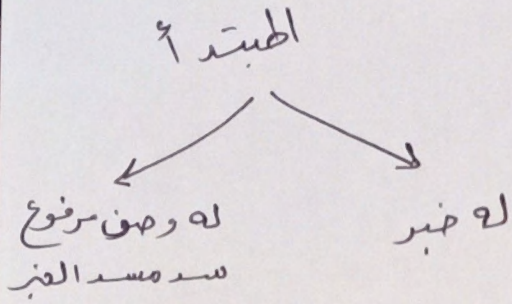 المبتدأ
له خبر
له وصف مرفوع
سد مسد الخبر